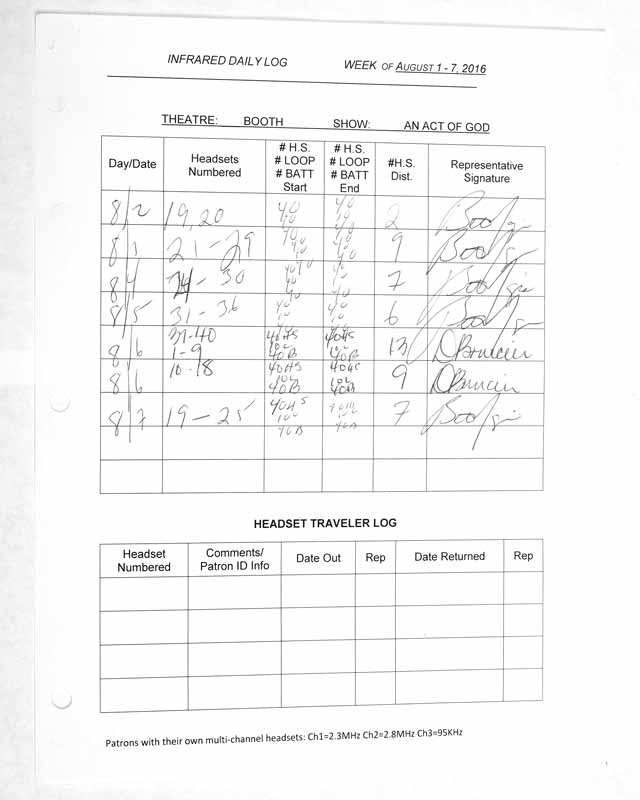 INFRARED DAILY LOG WEEK OF AUGUST 1 - 7, 2016
THEATRE: BOOTH SHOW: AN ACT OF GOD
Day/Date Headsets Numbered # H.S. # LOOP # BATT Start # H.S. # LOOP # BATT End #H.S. Dist. Representative Signature
8/2 19,20 40 40 2
8/3 21-29 40 40 9
8/4 - 30 40 7
8/5 31-36 6
8/6 37-40 1-9 40HS 10L 40B 40HS 10L 40B 13
8/6 10-18 40HS 10L 40B 40HS 10L 40B 9
8/7 19-25 40HS 40B 7
HEADSET TRAVELER LOG
Headset Numbered Comments/ Patron ID Info Date Out Rep Date Returned Rep
Patrons with their own multi-channel headsets: Ch1=2.3MHz Ch2=2.8MHz Ch3=95KHz